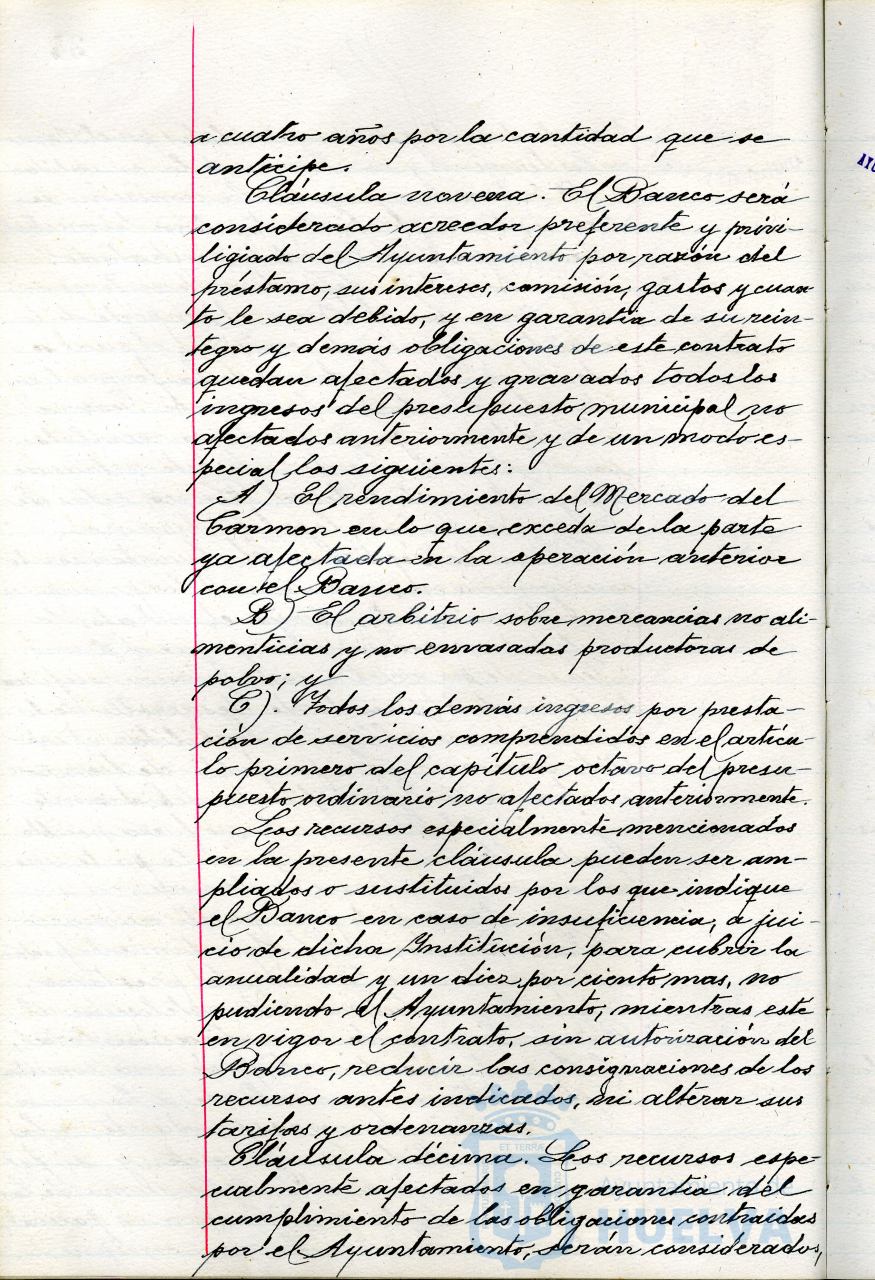 a cuatro años por la cantidad que se
anticipe.
Cláusula novena. El Banco será
considerado acreedor preferente y privi-
ligiado del Ayuntamiento por razón del
préstamo, sus intereses, comisión, gastos y cuan-
to le sea debido, y en garantía de su rein-
tegro y demás obligaciones de este contrato
quedan afectados y gravados todos los
ingresos del presupuesto municipal no
afectados anteriormente y de un modo es-
pecial los siguientes:
A) El rendimiento del Mercado del
Carmen en lo que exceda de la parte
ya afectada en la operación anterior
con el Banco.
B) El arbitrio sobre mercancías no ali-
menticias y no envasadas productoras de
polvo; y
C). Todos los demás ingresos por presta-
ción de servicios comprendidos en el artícu-
lo primero del capítulo octavo del presu-
puesto ordinario no afectados anteriormente.
Los recursos especialmente mencionados
en la presente cláusula pueden ser am-
pliados o sustituidos por los que indique
el Banco en caso de insuficiencia, a jui-
cio de dicha Institución, para cubrir la
anualidad y un diez por ciento mas, no
pudiendo el Ayuntamiento, mientras esté
en vigor el contrato, sin autorización del
Banco, reducir las consignaciones de los
recursos antes indicados, ni alterar sus
tarifas y ordenanzas.
Cláusula décima. Los recursos espe-
cialmente afectados en garantía del
cumplimiento de las obligaciones contraidas
por el Ayuntamiento, serán considerados,
Ayuntamiento de
HUELVA